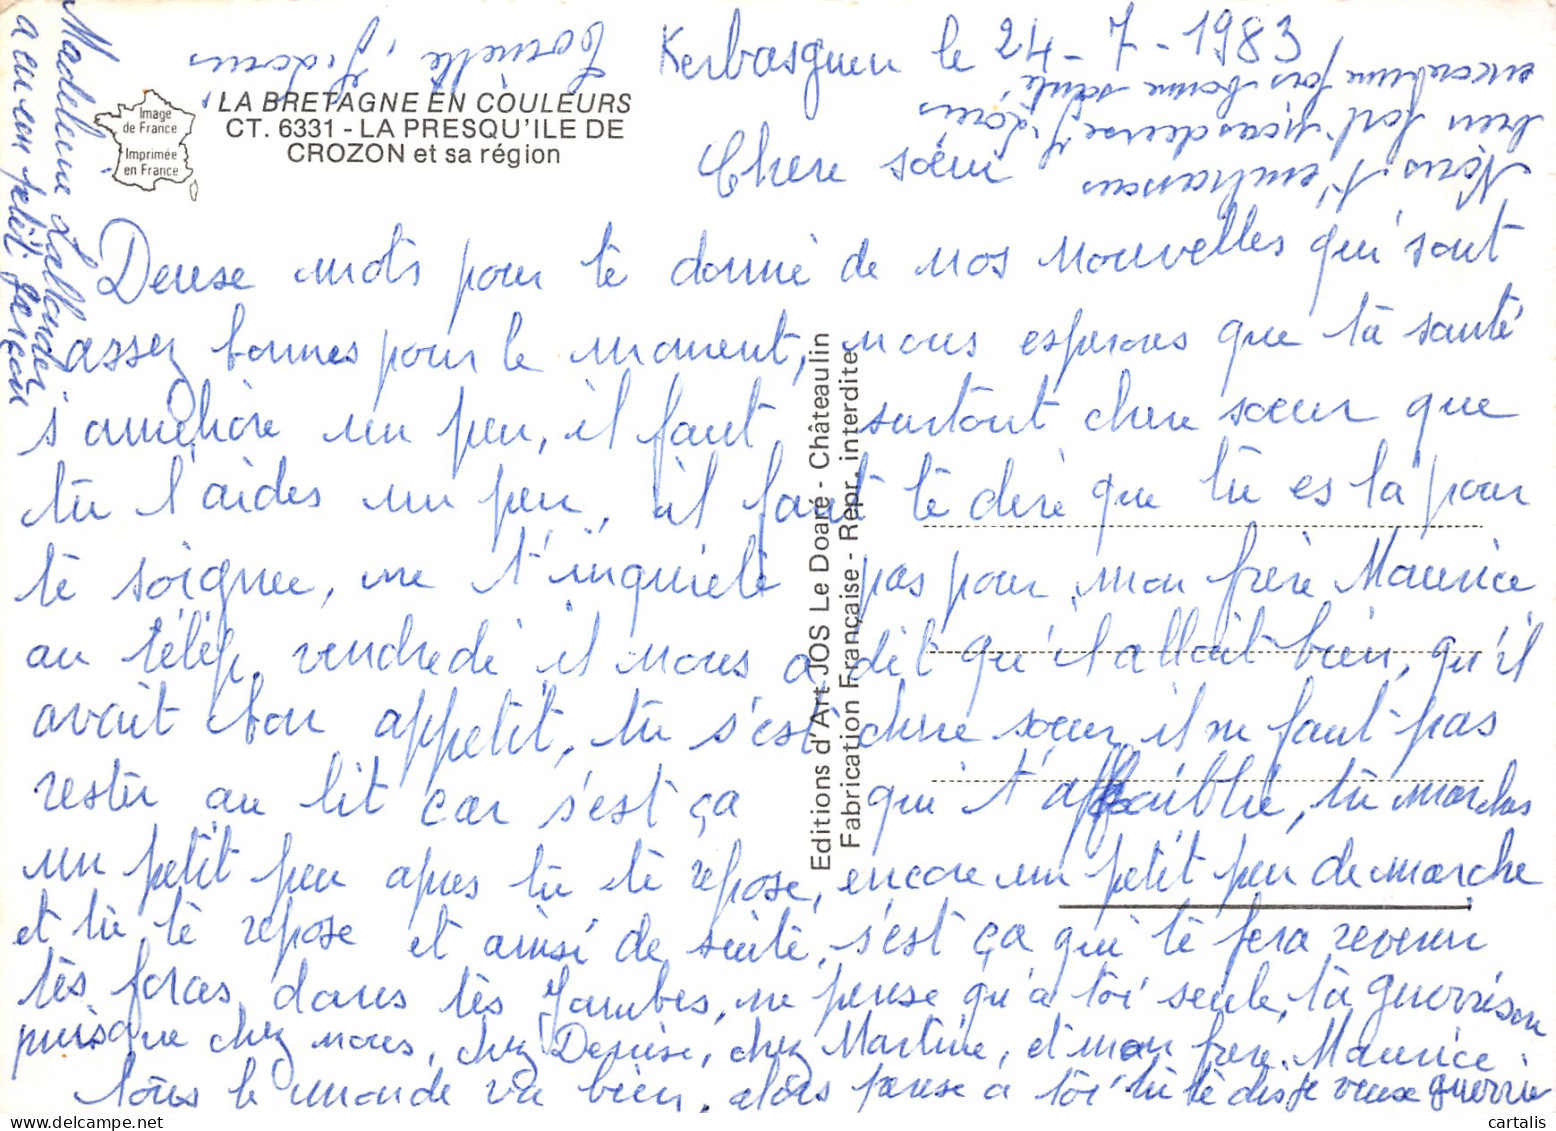 Kerbasguen le 24-7-1983
LA BRETAGNE EN COULEURS
CT. 6331 - LA PRESQU'ILE DE
CROZON et sa région
Image
de France
Imprimée
en France
Chere sœur
Deuse mots pour tè donné de nos nouvelles qui sont
assez bonnes pour le moment, nous esperons que ta santé
s'améliore un peu, il faut surtout chere sœur que
tu l'aides un peu, il faut tè dire que tu es là pour
tè soignee, ne t'inquietè pas pour mon frère Maurice
au télép. vendredi il nous a dit qu'il allait bien, qu'il
avait bon appetit, tu s'est chere sœur il ne faut pas
rester au lit car s'est ça qui t'affaiblie, tu marches
un petit peu apres tu tè repose, encore un petit peu de marche
et tu tè repose et ainsi de suite, s'est ça qui tè fera revenir
tès forces dans tès Jambes, ne pense qu'à toi seule, ta guerrison
puisque chez nous, chez Denise, chez Martine, et mon frere Maurice
tous le monde va bien, alors pense à toi tu tè dis je veux guerrir
Nous t'embrassons
bien fort
encore une fois bonne santé
Isidorus
Madeleine Lallander
a eu un petit garçon
Editions d'Art JOS Le Doaré - Châteaulin
Fabrication Française - Repr. interdite